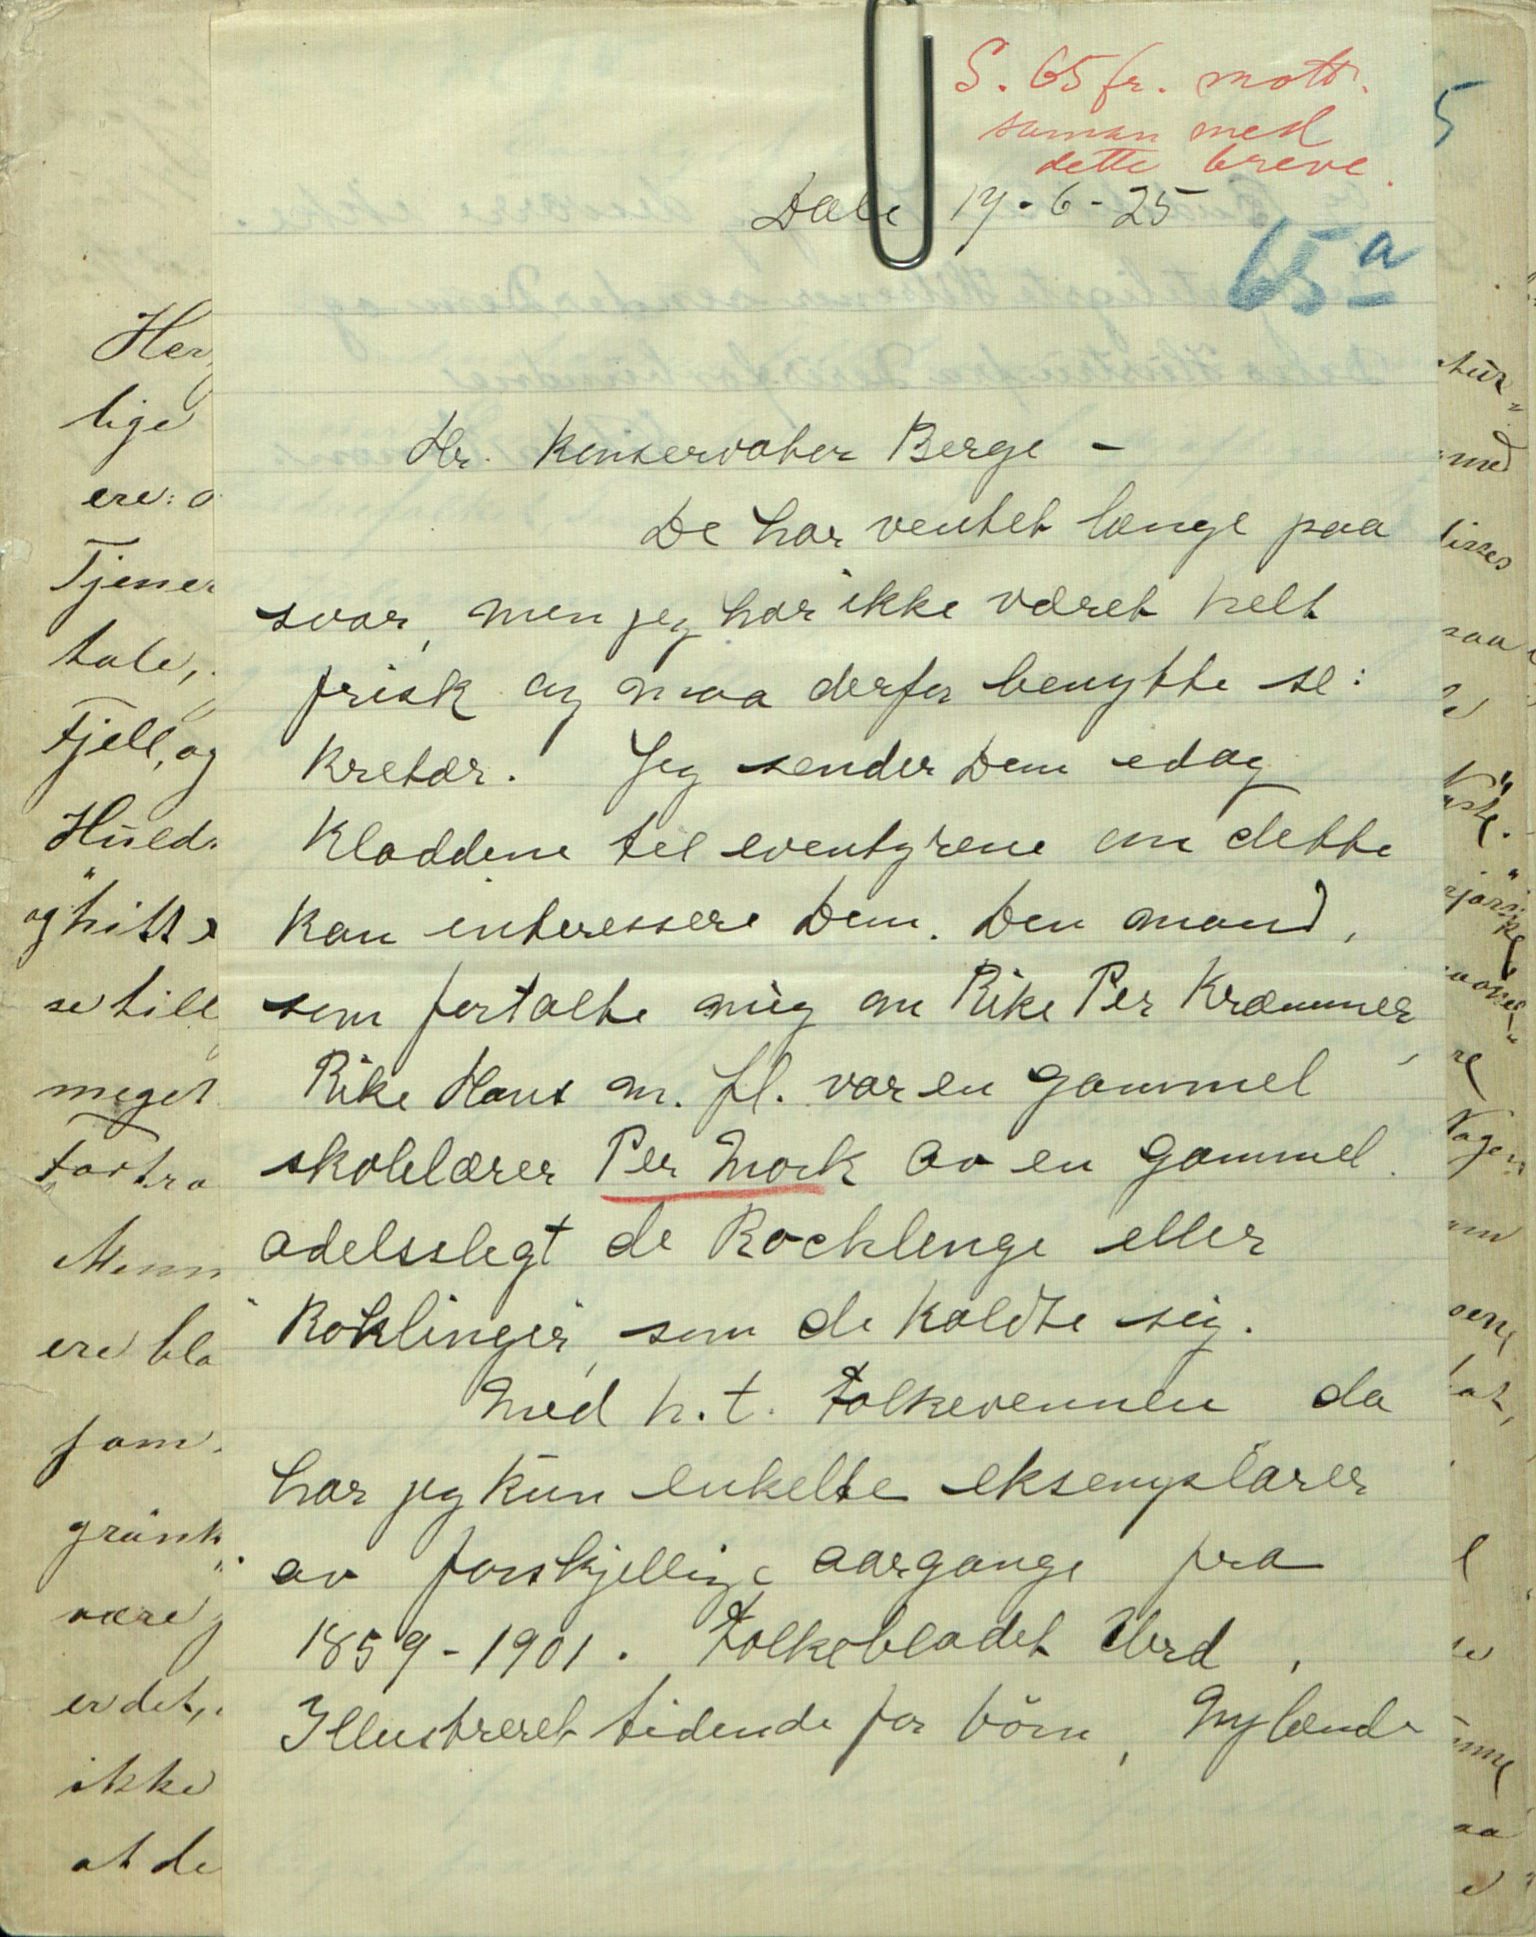 S. 65 fr. mott.
saman med
dette breve.
5
Dale 17-6-25
65a
Hr. Konservator Berge -
De har ventet længe paa
svar, men jeg har ikke været helt
frisk og maa derfor benytte se:
kretær. Jeg sender Dem idag
Kladdene til eventyrene om dette
kan interessere Dem. Den mand,
som fortalte mig om Rike Per Kræmmer,
Rike Hans m. fl. var en gammel
skolelærer Per Mork av en gammel
adelsslegt de Rocklenge eller
"Roklingie", som de kaldte sig.
Med h.t. Folkevennen da
har jeg kun enkelte eksemplarer
av forskjellige aargange fra
1859-1901. Folkebladet Urd,
Illustreret tidende for børn, Nylænde
Her
lige
ere: o
Tjener
tale,
Fjell, og
Huld
og hitt
se till
meget
Fortra
Menn
ere bla
fom.
grank
være
er det,
ikke
at de
med
disses
saa